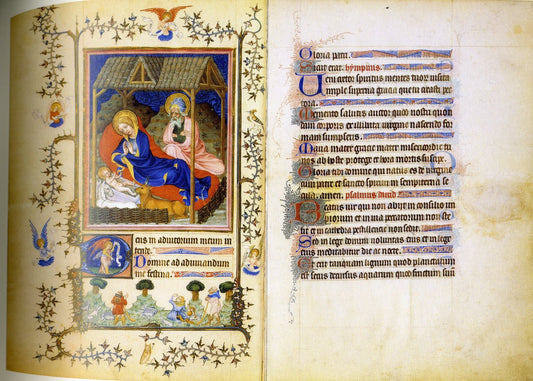 Deus in adiutorium meum in
tende.
Domine ad adiuuandum
me festina.
Gloria patri.
Sicut erat. hympnus.
Ueni creator spiritus mentes tuor
imple superna gracia que tu creasti pec
tora.
Memento salutis auctor quod nostri quon
dam corporis ex illibata uirgine nascendo for
mam sumpseris.
Maria mater gracie mater misericordie tu
nos ab hoste protege et hora mortis suscipe.
Gloria tibi domine qui natus es de uirgine
cum patre et sancto spiritu in sempiterna se
cula. amen. psalmus dauid
Beatus uir qui non abiit in consilio im
piorum et in uia peccatorum non ste
tit et in cathedra pestilencie non sedit.
Sed in lege domini uoluntas eius et in lege
eius meditabitur die ac nocte.
Et erit tanquam lignum quod plantatum
est secus decursus aquarum quod fructum suum